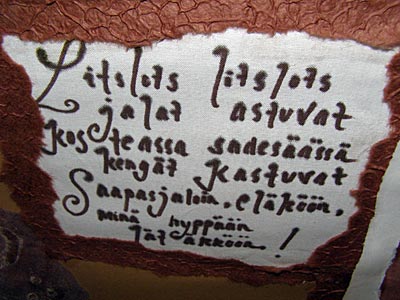 Litslots litslots
jalat astuvat
kosteassa sadesäässä
kengät kastuvat
Saapasjaloin, eläköön,
minä hyppään
lätäkköön!